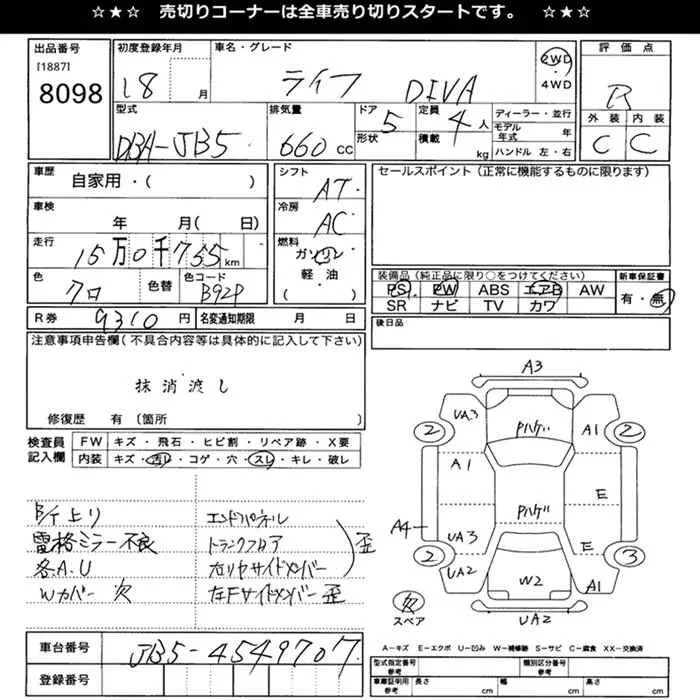 ☆★☆ 売切りコーナーは全車売り切りスタートです。 ☆★☆
出品番号 初度登録年月 車名・グレード 評価点
[1887]
8098
18 月 ライフ DIVA 2WD ・ 4WD R
型式 排気量 ドア 定員 ディーラー・並行 外装 内装
DBA-JB5 660 CC 5 4 人 モデル年式 年 C C
形状 積載 kg ハンドル 左・右
車歴 自家用・( ) シフト AT セールスポイント (正常に機能するものに限ります)
車検 年 月 ( 日) 冷房 AC
走行 15万0千755 km 燃料 ガソリン
軽・油
色 クロ 色替 色コード B92P ( )
装備品 (純正品に限り○をつけてください) 新車保証書
PS PW ABS エアB AW 有・無
SR ナビ TV カワ
R券 9310 円 名変通知期限 月 日 後日品
注意事項申告欄 (不具合内容等は具体的に記入して下さい)
抹消渡し
修復歴 有 〔箇所 〕
検査員記入欄 FW キズ・飛石・ヒビ割・リペア跡・X要
内装 キズ・汚れ・コゲ・穴・スレ・キレ・破レ
B/T上り エンドパネル
電格ミラー不良 トランクフロア 歪
各A.U 右リヤサイドメンバー
Wカバー欠 左Fサイドメンバー歪
車台番号 JB5-4549707
登録番号
A3
UA3 Pハゲ A1
2 2
A1 E
Pハゲ
A4 UA3 E
2 3
UA2 W2 A1
欠
スペア UA2
A-キズ E-エクボ U-凹み W-補修跡 S-サビ C-腐食 XX-交換済
型式指定番号 参考 類別区分番号 参考
車庫証明用 参考 長さ cm 幅 cm 高さ cm